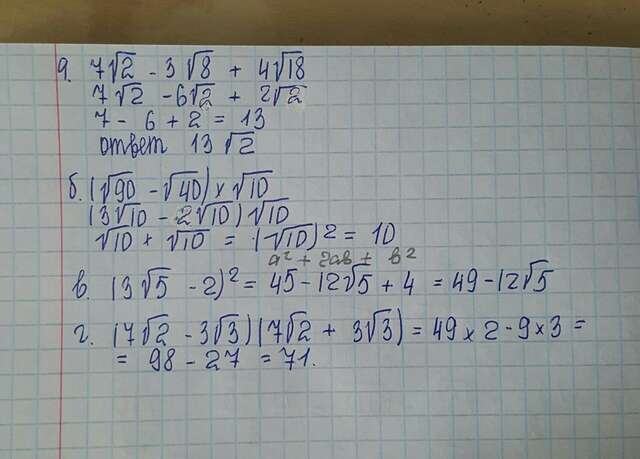 а. 7√2 - 3√8 + 4√18
7√2 - 6√2 + 2√2
7 - 6 + 2 = 13
ответ 13√2
б. (√90 - √40) × √10
(3√10 - 2√10) √10
√10 × √10 = (√10)² = 10
a² + 2ab + b²
в. (3√5 - 2)² = 45 - 12√5 + 4 = 49 - 12√5
г. (7√2 - 3√3)(7√2 + 3√3) = 49 × 2 - 9 × 3 =
= 98 - 27 = 71.